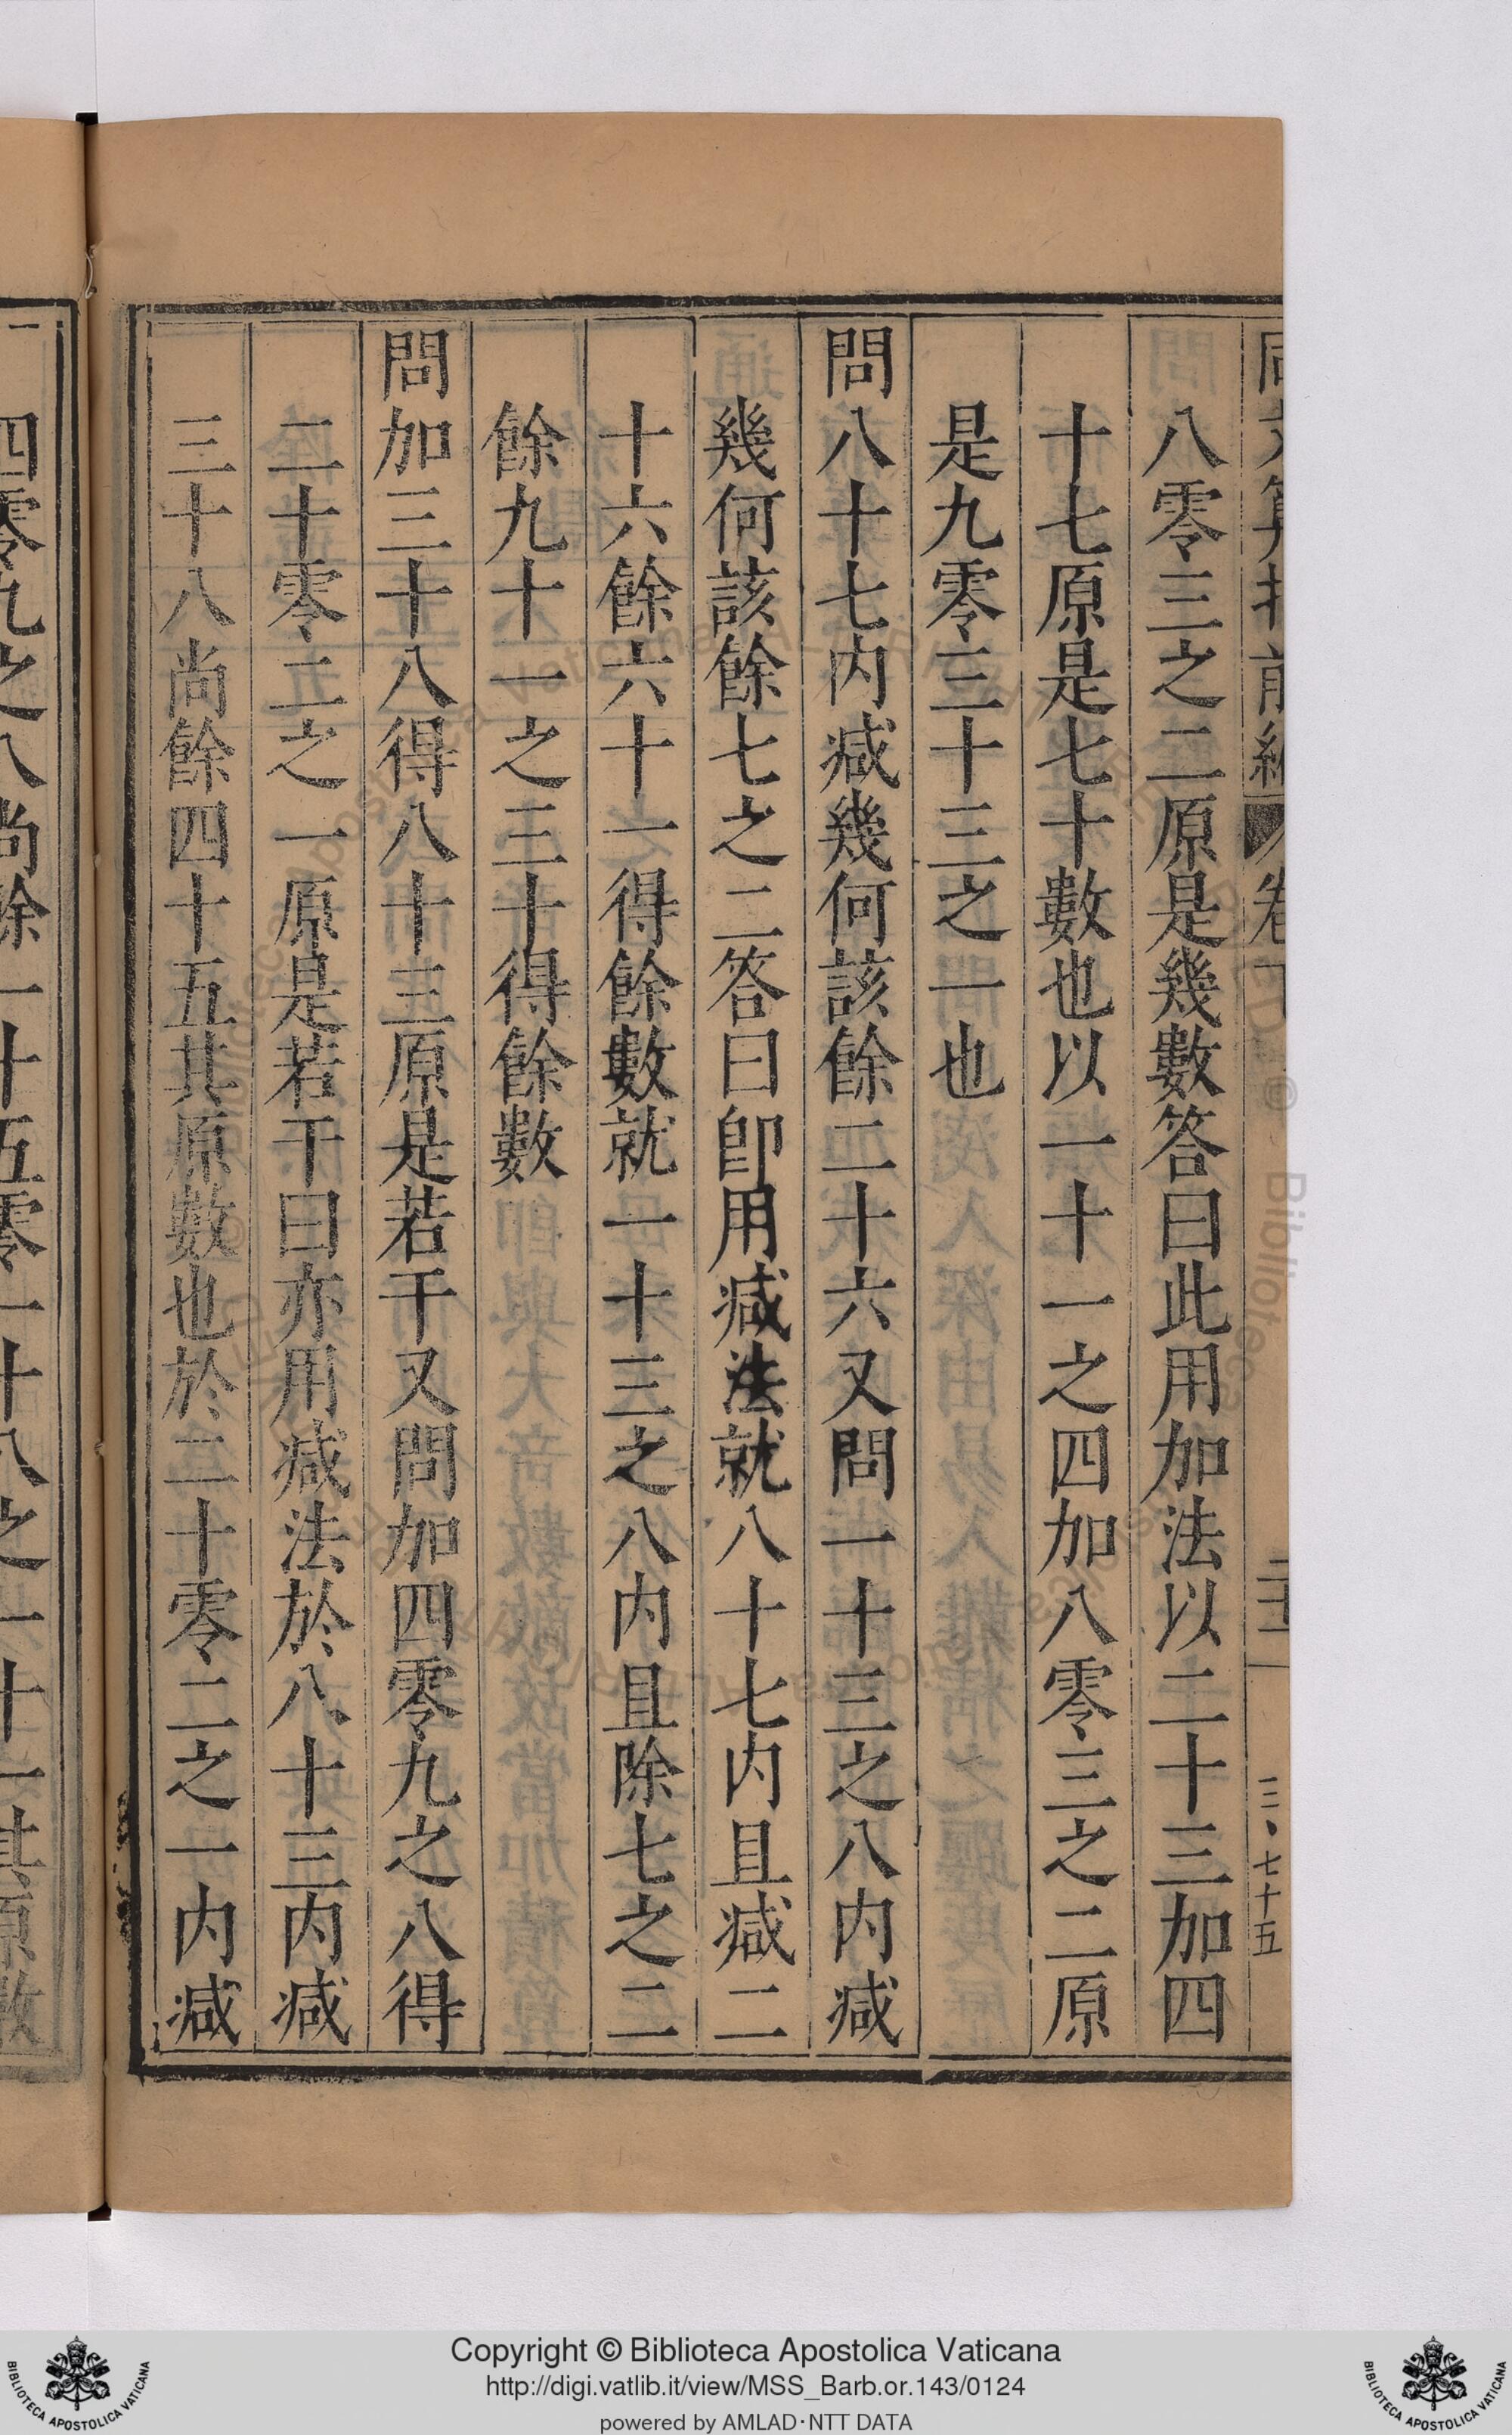 八零三之二原是幾數答曰此用加法以二十三加四
十七原是七十數也以一十一之四加八零三之二原
是九零三十三之一也
問八十七内减幾何該餘二十六又問一十三之八内减
幾何該餘七之二答曰卽用减法就八十七内且减二
十六餘六十一得餘數就一十三之八内且除七之二
餘九十一之三十得餘數
問加三十八得八十三原是若干又問加四零九之八得
二十零二之一原是若干曰亦用减法於八十三内减
三十八尚餘四十五其原數也於二十零二之一内减
四零九之八尚餘一十五零一十八之一十一其原數
三 七十五
Copyright © Biblioteca Apostolica Vaticana
http://digi.vatlib.it/view/MSS_Barb.or.143/0124
powered by AMLAD·NTT DATA
BIBLIOTECA APOSTOLICA VATICANA
BIBLIOTECA APOSTOLICA VATICANA